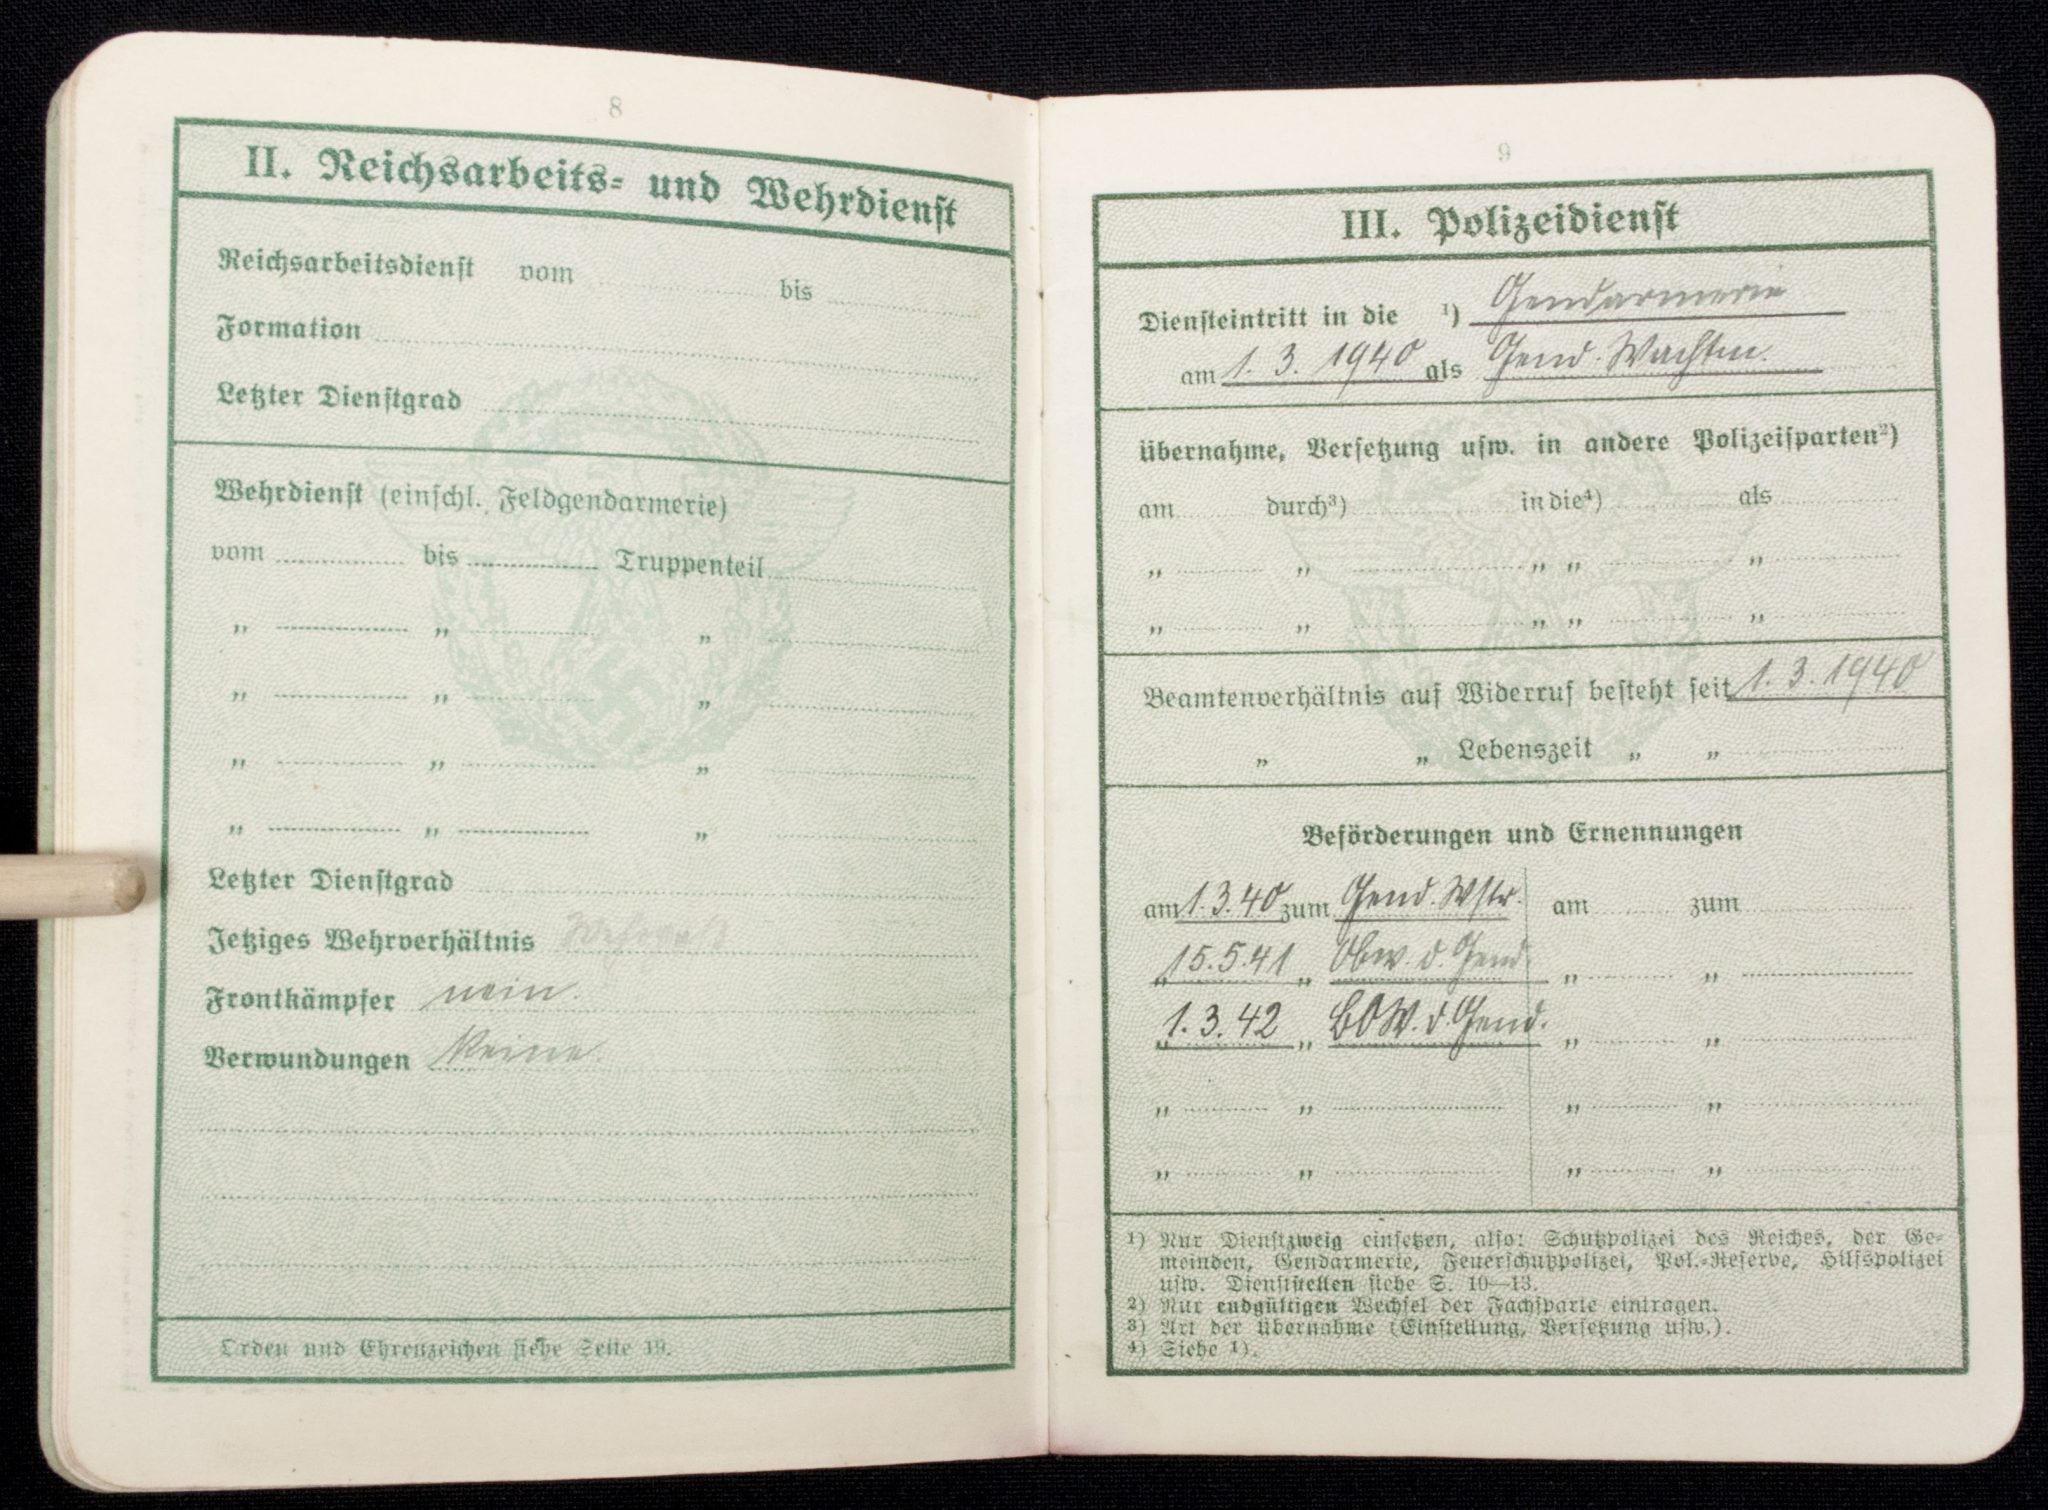 8
II. Reichsarbeits- und Wehrdienst
Reichsarbeitsdienst vom bis
Formation
Letzter Dienstgrad
Wehrdienst (einschl. Feldgendarmerie)
vom bis Truppenteil
„ „ „
„ „ „
„ „ „
„ „ „
Letzter Dienstgrad
Jetziges Wehrverhältnis
Frontkämpfer nein.
Verwundungen Keine.
Orden und Ehrenzeichen siehe Seite 19.
9
III. Polizeidienst
Diensteintritt in die ¹) Gendarmerie
am 1. 3. 1940 als Gend. Wachtm.
Übernahme, Versetzung usw. in andere Polizeisparten²)
am durch³) in die⁴) als
„ „ „ „ „
„ „ „ „ „
Beamtenverhältnis auf Widerruf besteht seit 1. 3. 1940
„ „ Lebenszeit „ „
Beförderungen und Ernennungen
am 1. 3. 40 zum Gend. Wstr. am zum
„ 15. 5. 41 „ Obw. d. Gend. „ „
„ 1. 3. 42 „ BOW. d. Gend. „ „
„ „ „ „
„ „ „ „
¹) Nur Dienstzweig einsetzen, also: Schutzpolizei des Reiches, der Ge-
meinden, Gendarmerie, Feuerschutzpolizei, Pol.-Reserve, Hilfspolizei
usw. Dienststellen siehe S. 10—13.
²) Nur endgültigen Wechsel der Fachsparte eintragen.
³) Art der Übernahme (Einstellung, Versetzung usw.).
⁴) Siehe ¹).